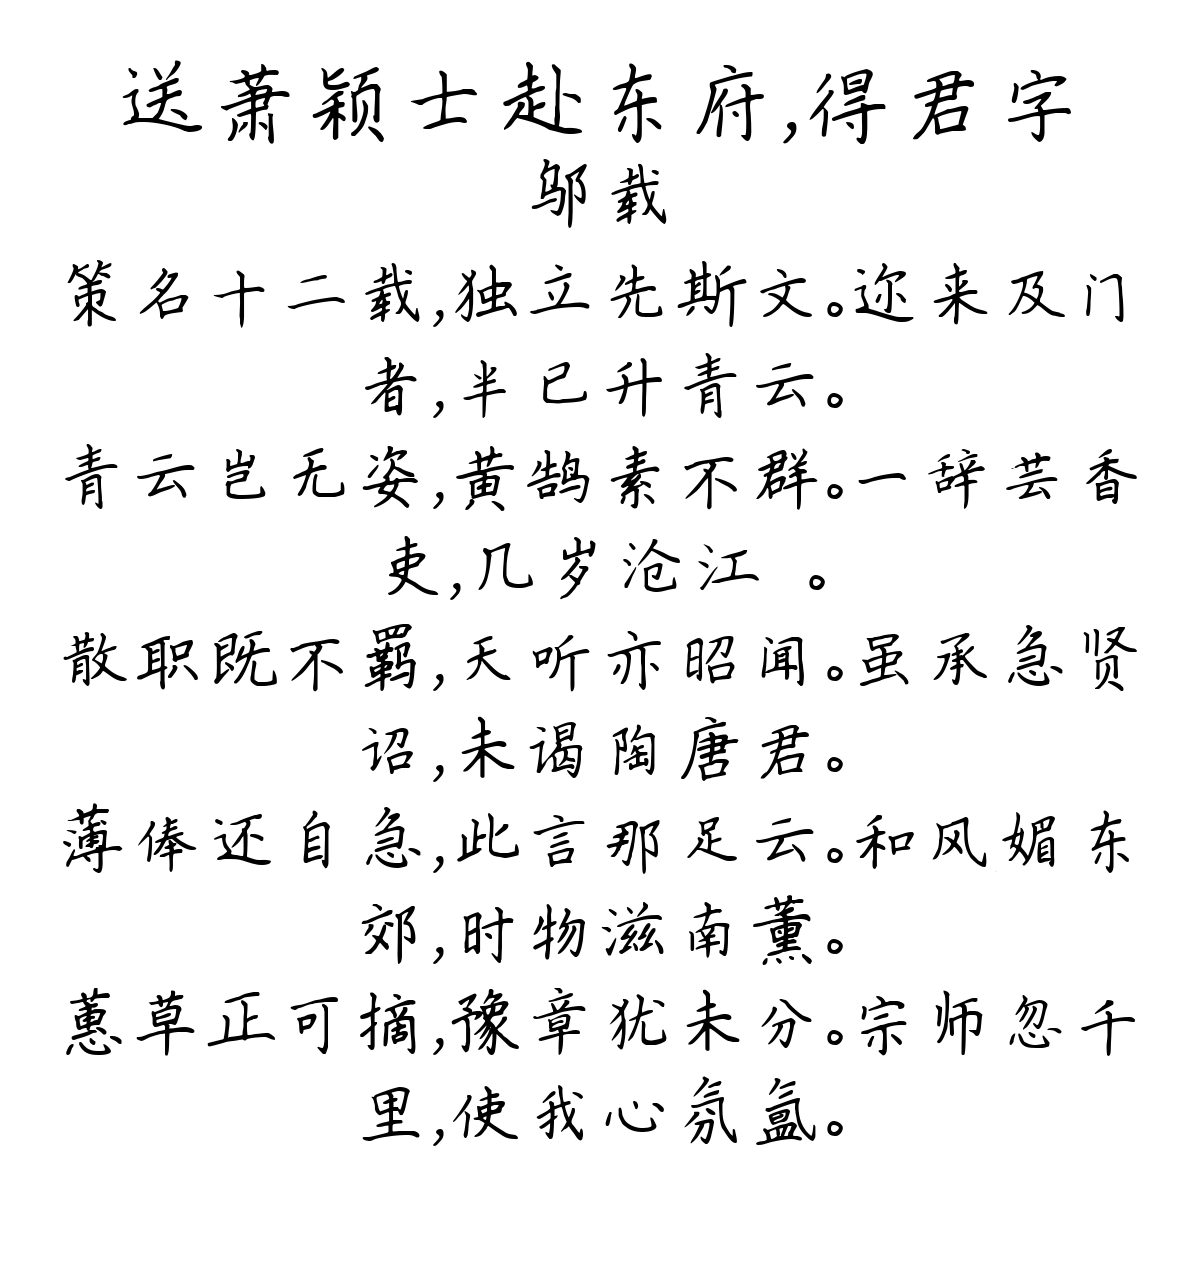 送萧颖士赴东府,得君字
邬载
策名十二载,独立先斯文。迩来及门
者,半已升青云。
青云岂无姿,黄鹄素不群。一辞芸香
吏,几岁沧江 。
散职既不羁,天听亦昭闻。虽承急贤
诏,未谒陶唐君。
薄俸还自急,此言那足云。和风媚东
郊,时物滋南薰。
蕙草正可摘,豫章犹未分。宗师忽千
里,使我心氛氲。